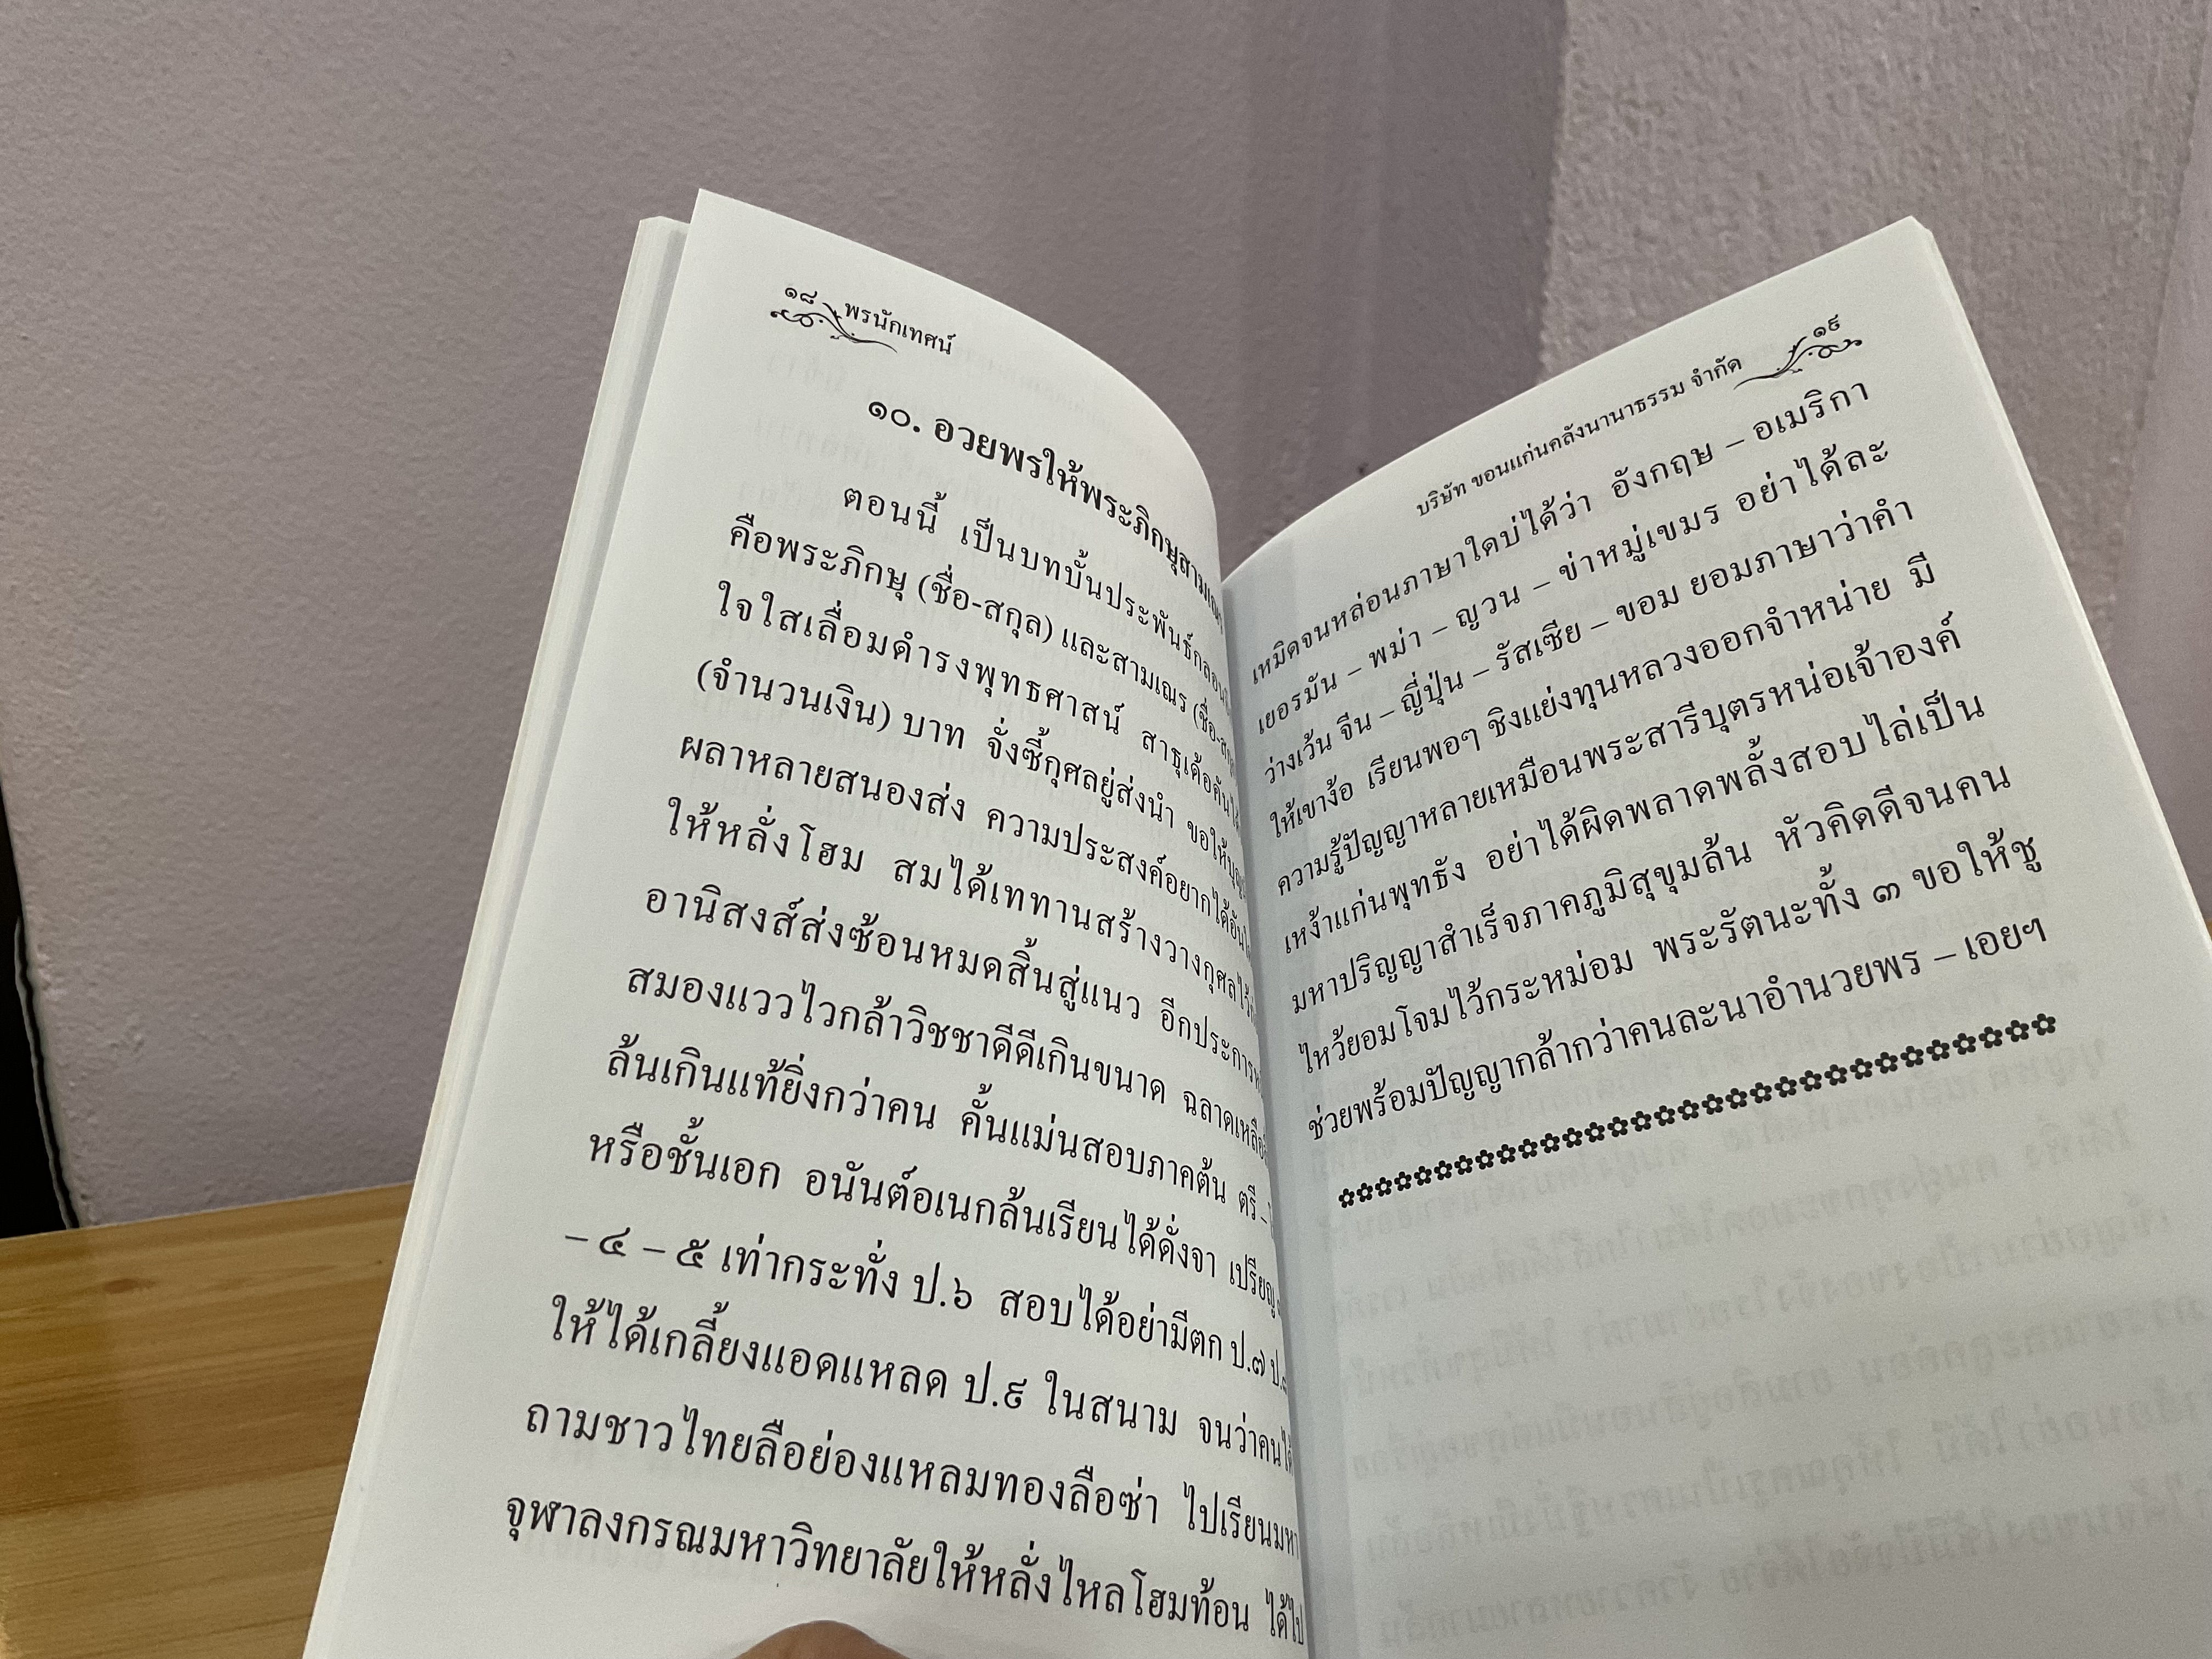 ๑๘ พรนักเทศน์
๑๐. อวยพรให้พระภิกษุสามเณร
ตอนนี้ เป็นบทบั้นประพันธ์กลอน
คือพระภิกษุ (ชื่อ-สกุล) และสามเณร (ชื่อ-สกุ
ใจใสเลื่อมดำรงพุทธศาสน์ สาธุเด้อคัน
(จำนวนเงิน) บาท จั่งซี้กุศลยู่ส่งนำ ขอให้บุญ
ผลาหลายสนองส่ง ความประสงค์อยากได้อัน
ให้หลั่งโฮม สมได้เททานสร้างวางกุศลไว้
อานิสงส์ส่งซ้อนหมดสิ้นสู่แนว อีกประการ
สมองแววไวกล้าวิชชาดีดีเกินขนาด ฉลาดเหลือ
ล้นเกินแท้ยิ่งกว่าคน คั้นแม่นสอบภาคต้น ตรี –
หรือชั้นเอก อนันต์อเนกล้นเรียนได้ดั่งจา เปรียญ
– ๔ – ๕ เท่ากระทั่ง ป.๖ สอบได้อย่ามีตก ป.๗ ป.
ให้ได้เกลี้ยงแอดแหลด ป.๙ ในสนาม จนว่าคนได้
ถามชาวไทยลือย่องแหลมทองลือซ่า ไปเรียนมหา
จุฬาลงกรณมหาวิทยาลัยให้หลั่งไหลโฮมท้อน ได้ไป
บริษัท ขอนแก่นคลังนานาธรรม จำกัด ๑๙
เหมิดจนหล่อนภาษาใดบ่ได้ว่า อังกฤษ – อเมริกา
เยอรมัน – พม่า – ญวน – ข่าหมู่เขมร อย่าได้ละ
ว่างเว้น จีน – ญี่ปุ่น – รัสเซีย – ขอม ยอมภาษาว่าคำ
ให้เขาง้อ เรียนพอๆ ชิงแย่งทุนหลวงออกจำหน่าย มี
ความรู้ปัญญาหลายเหมือนพระสารีบุตรหน่อเจ้าองค์
เหง้าแก่นพุทธัง อย่าได้ผิดพลาดพลั้งสอบไล่เป็น
มหาปริญญาสำเร็จภาคภูมิสุขุมล้น หัวคิดดีจนคน
ไหว้ยอมโจมไว้กระหม่อม พระรัตนะทั้ง ๓ ขอให้ชู
ช่วยพร้อมปัญญากล้ากว่าคนละนาอำนวยพร – เอยฯ